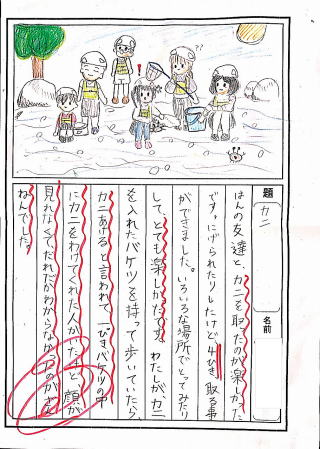 題 カニ
名前
はんの友達と、カニを取ったのが楽しかった
です。にげられたりしたけど4ひき取る事
ができました。いろいろな場所でとってみたり
して、とても楽しかたです。わたしが、カニ
を入れたバケツを持って歩いていたら、
カニあげると言われて、一ぴきバケツの中
にカニをわけてくれた人がいた
見れなくて、だれだかわからなかったのがざん
ねんでした。
!
??